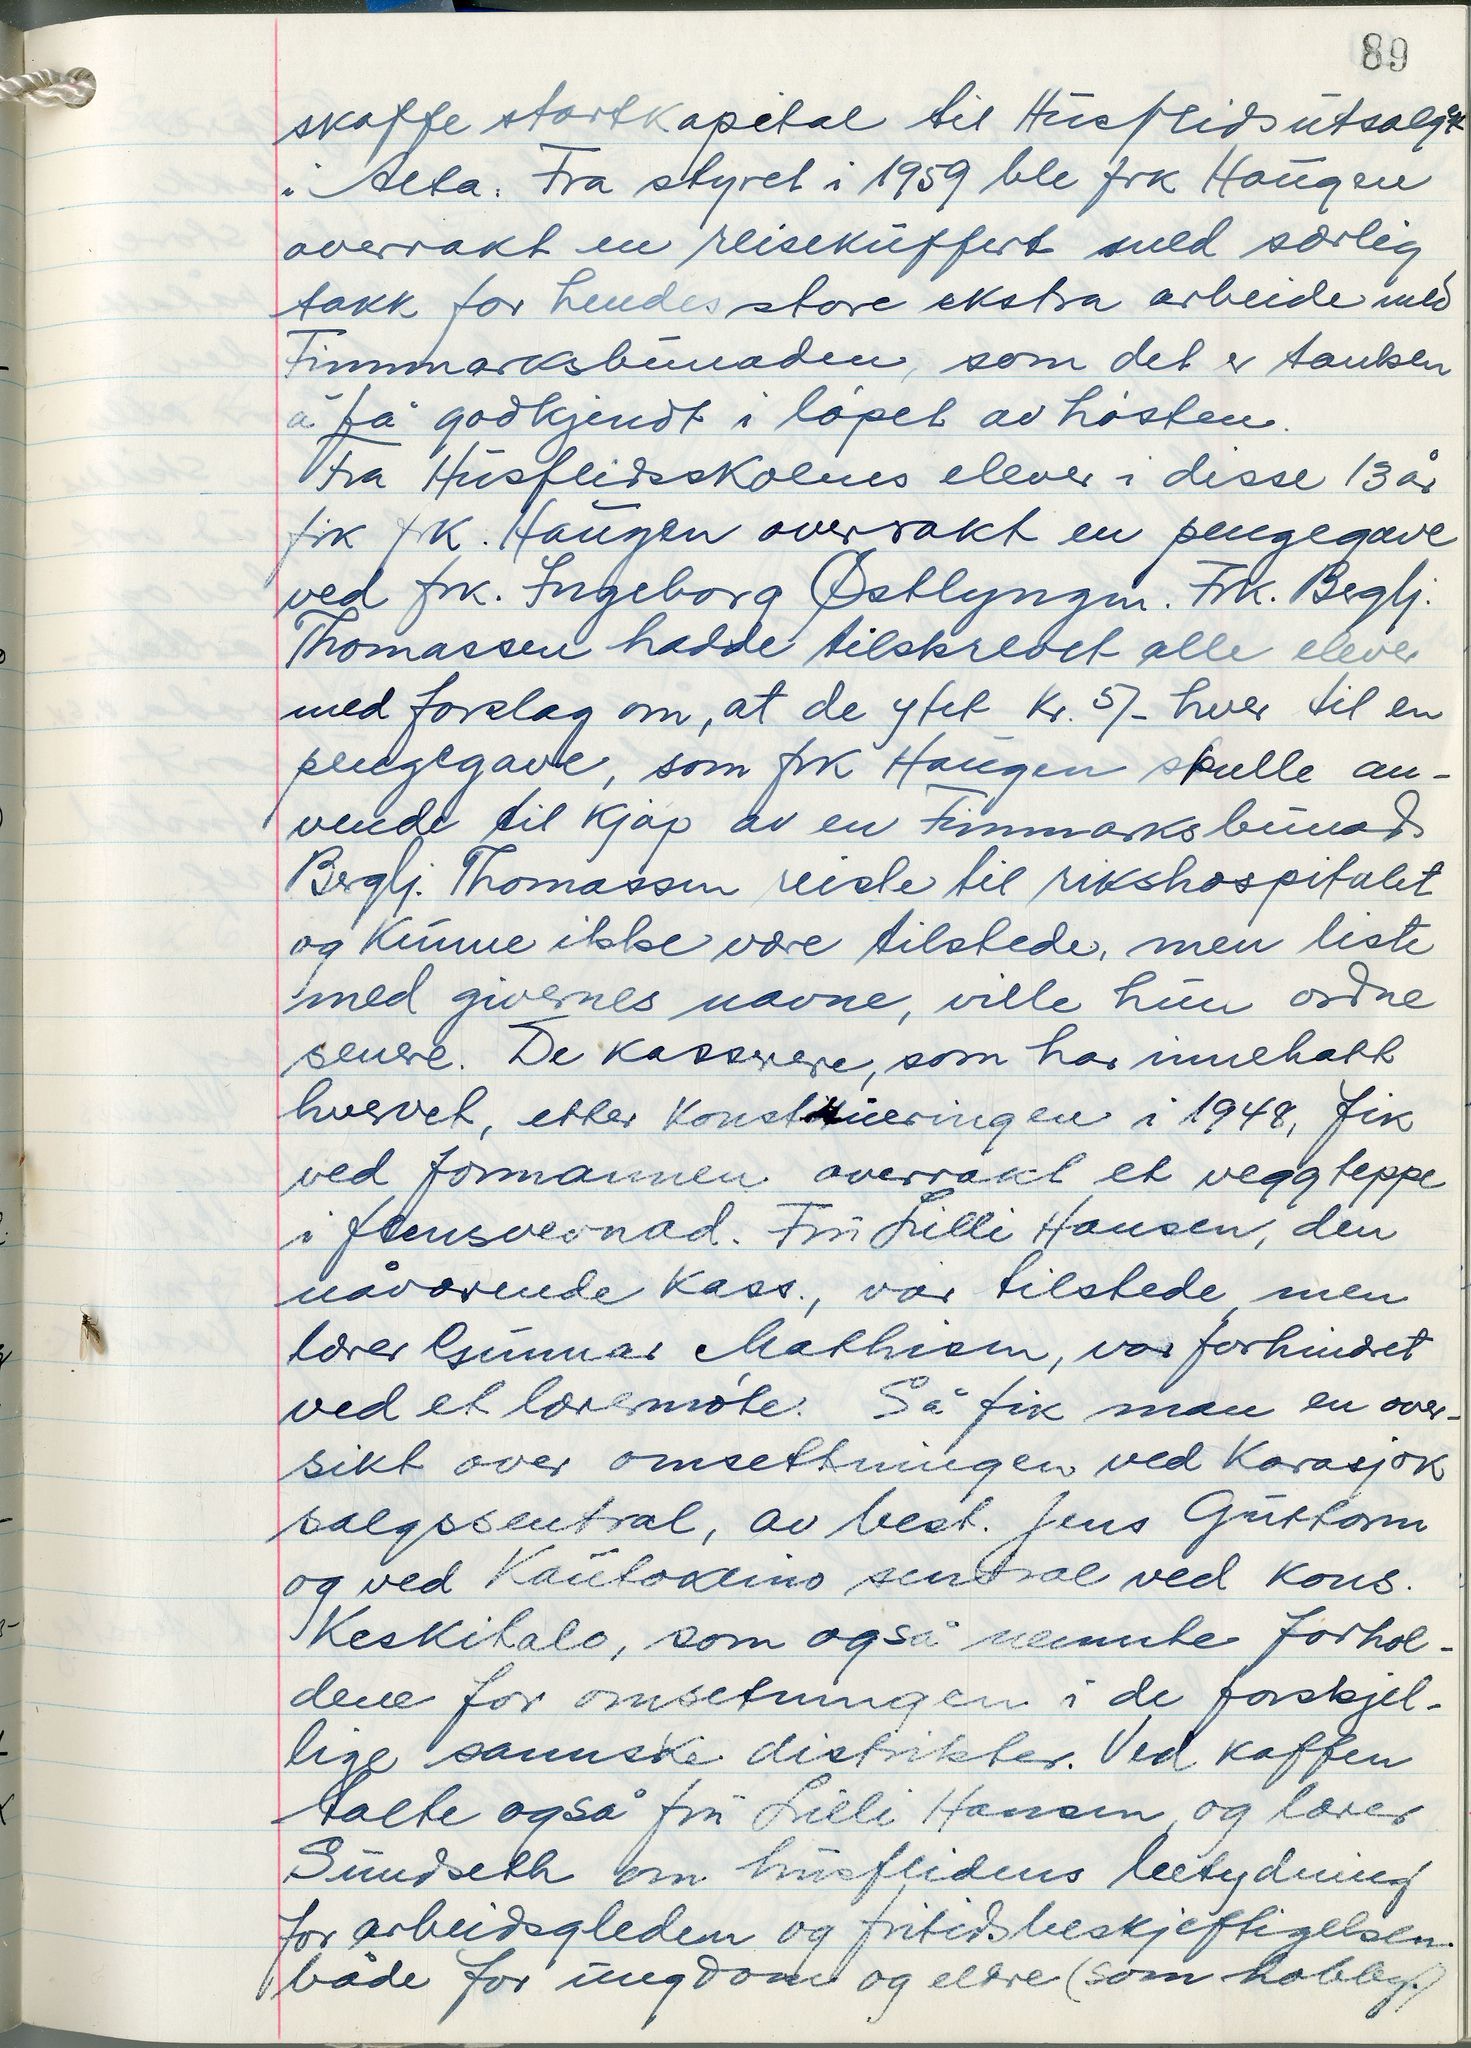 89
skaffe startkapital til Husflidsutsalget
i Alta. Fra styret i 1959 ble frk Haugen
overrakt en reisekuffert med særlig
takk for hendes store ekstra arbeide med
Finnmarksbunaden, som det er tanken
å få godkjendt i løpet av høsten.
Fra Husflidsskolens elever i disse 13 år
fik frk. Haugen overrakt en pengegave
ved frk. Ingeborg Østlyngen. Frk. Berglj.
Thomassen hadde tilskrevet alle elever
med forslag om, at de ytet kr. 5/- hver til en
pengegave, som frk Haugen skulle an-
vende til kjøp av en Finnmarksbunad.
Berglj. Thomassen reiste til rikshospitalet
og kunne ikke være tilstede, men liste
med givernes navne, ville hun ordne
senere. De kasserere, som har innehatt
hvervet, etter konstitueringen i 1948, fik
ved formannen overrakt et veggteppe
i flensvevnad. Fru Lilli Hansen, den
nåværende kass., var tilstede, men
lærer Gunnar Mathisen, var forhindret
ved et lærermøte. Så fik man en over-
sikt over omsettningen ved Karasjok
salgssentral, av best. Jens Guttorm
og ved Kautokeino sentral ved kons.
Keskitalo, som også nemnte forhol-
dene for omsetningen i de forskjel-
lige samiske distrikter. Ved kaffen
talte også fru Lilli Hansen og lærer
Sundseth om husflidens betydning
for arbeidsgleden og fritidsbeskjeftigelsen.
både for ungdom og eldre (som hobby.)